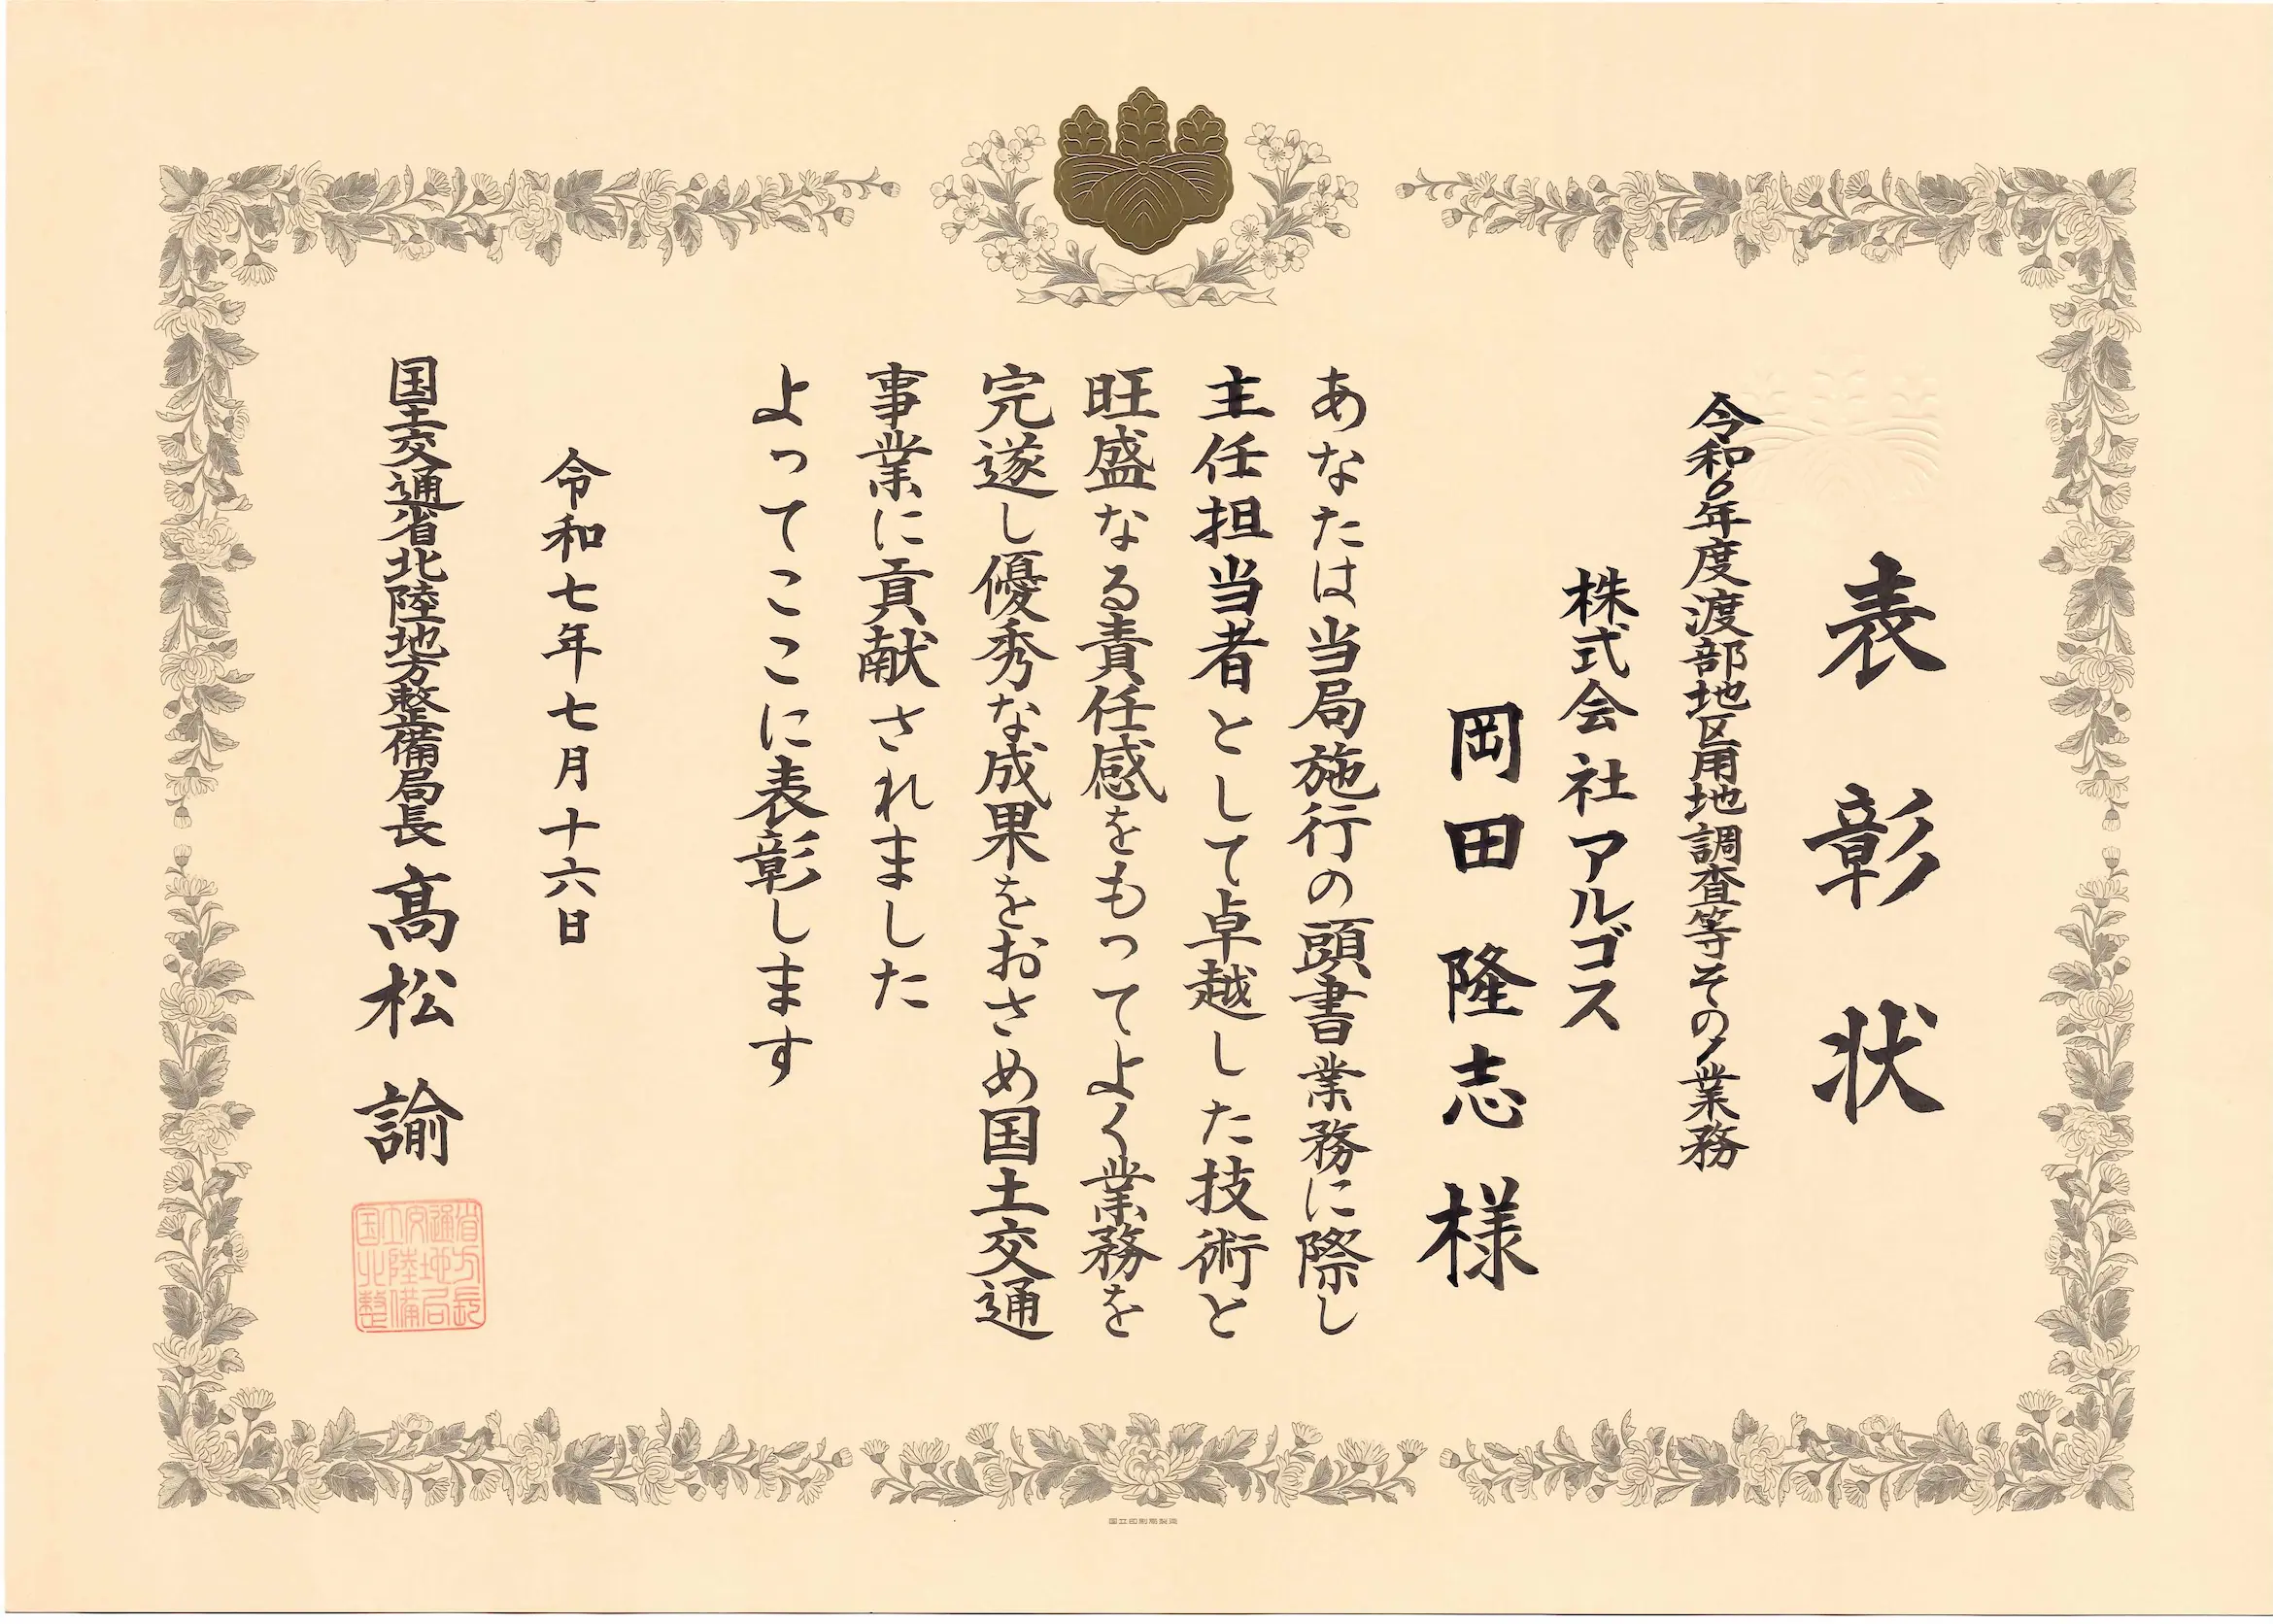 表彰状
令和6年度渡部地区用地調査等その1業務
株式会社アルゴス
岡田隆志様
あなたは当局施行の頭書業務に際し
主任担当者として卓越した技術と
旺盛なる責任感をもってよく業務を
完遂し優秀な成果をおさめ国土交通
事業に貢献されました
よってここに表彰します
令和七年七月十六日
国土交通省北陸地方整備局長 髙松諭
国土交通省北陸地方整備局長
国立印刷局製造